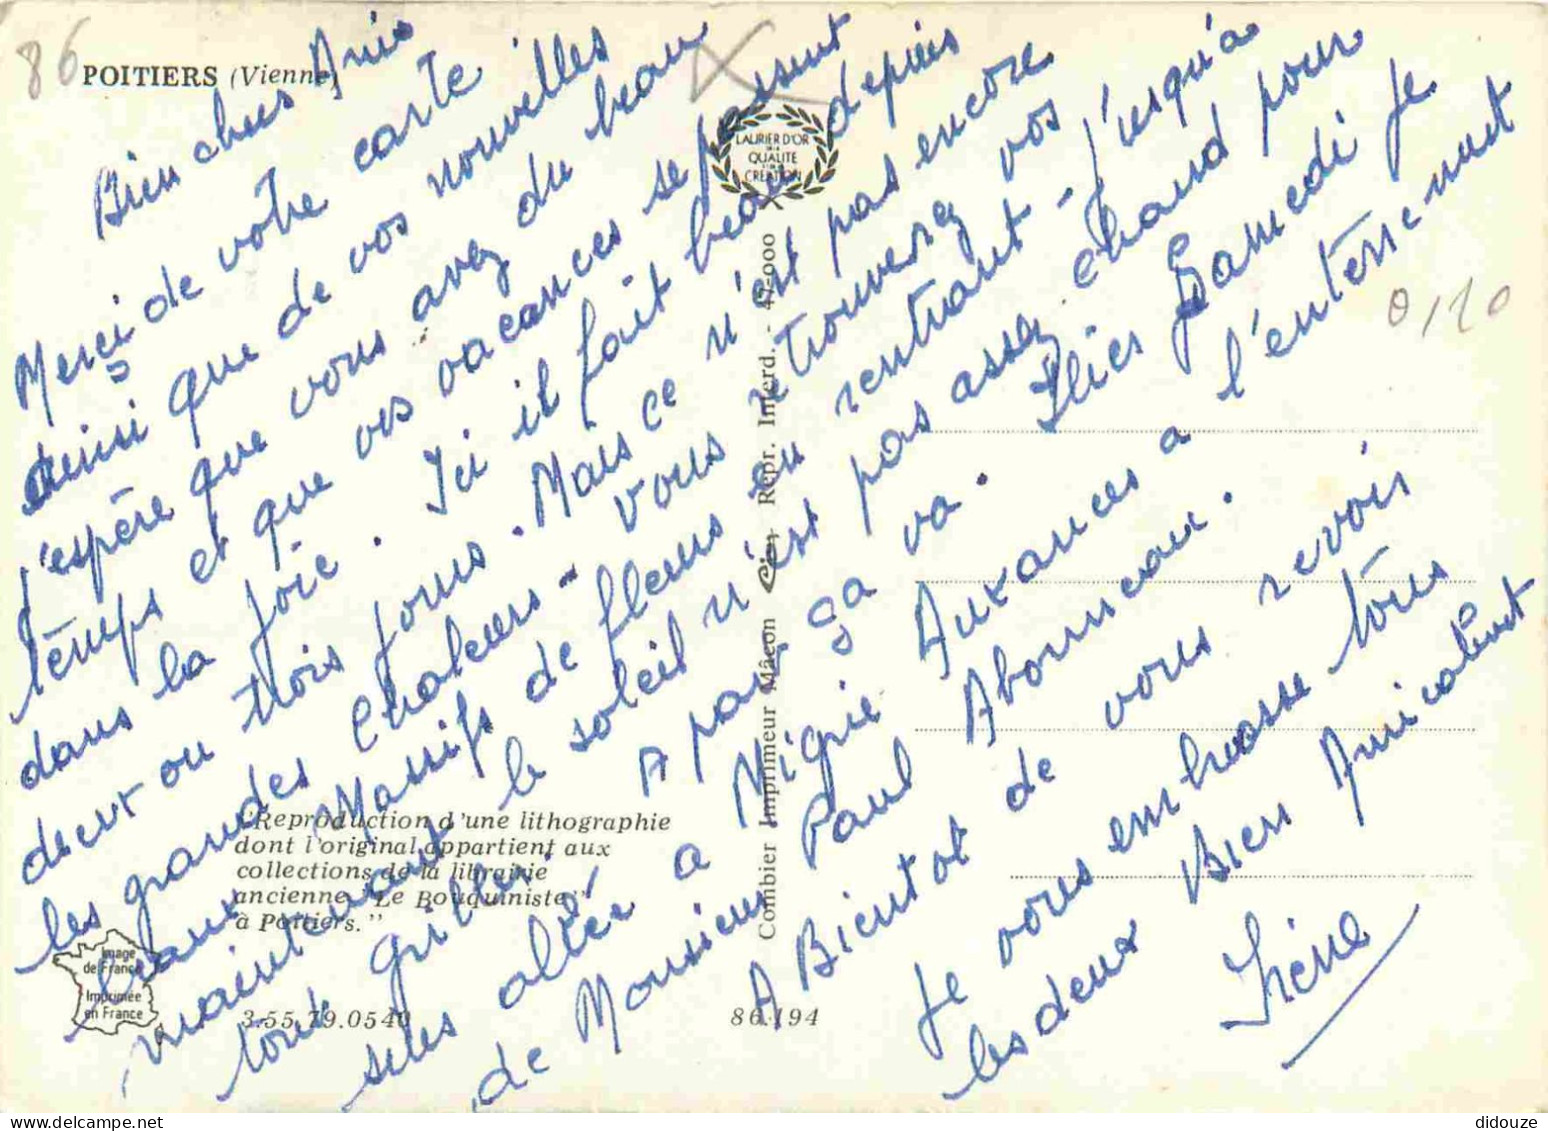 86
POITIERS (Vienne)
Bien chers Amis
Merci de votre carte
ainsi que de vos nouvelles
j'espère que vous avez du beau
temps et que vos vacances se passent
dans la joie. Ici il fait beau depuis
deux ou trois jours. Mais ce n'est pas encore
les grandes chaleurs - vous retrouverez vos
beaux Massifs de fleurs en rentrant - jusqu'à
maintenant le soleil n'est pas assez chaud pour
tout griller. A part ça va. Hier Samedi je
suis allée à Migné Auxances a l'enterrement
de Monsieur Paul Abonneau.
A Bientot de vous revoir
Je vous embrasse tous
les deux Bien Amicalement
Irène
LAURIER D'OR
QUALITE
CREATION
0,10
Combier Imprimeur Mâcon Cim Repr. Interd. - 47-000
"Reproduction d'une lithographie
dont l'original appartient aux
collections de la librairie
ancienne "Le Bouquiniste"
à Poitiers."
Image
de France
Imprimée
en France
3-55.79.0540
86.194
didouze